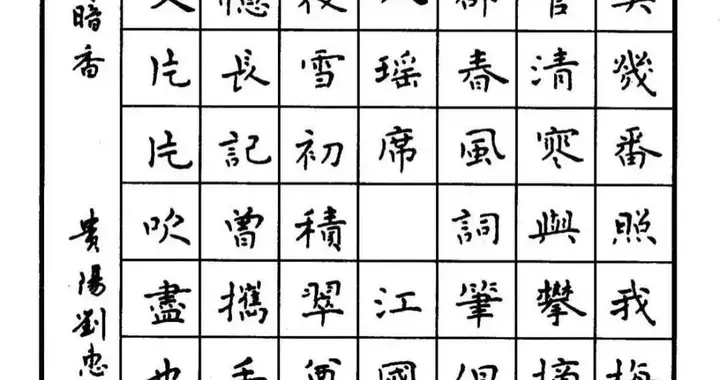 幾番照我梅
管清寒與攀摘
卻春風詞筆但
瑶席 江國
夜雪初積翠
憶長記曾攜手
片片吹盡也
暗香 貴陽劉忠